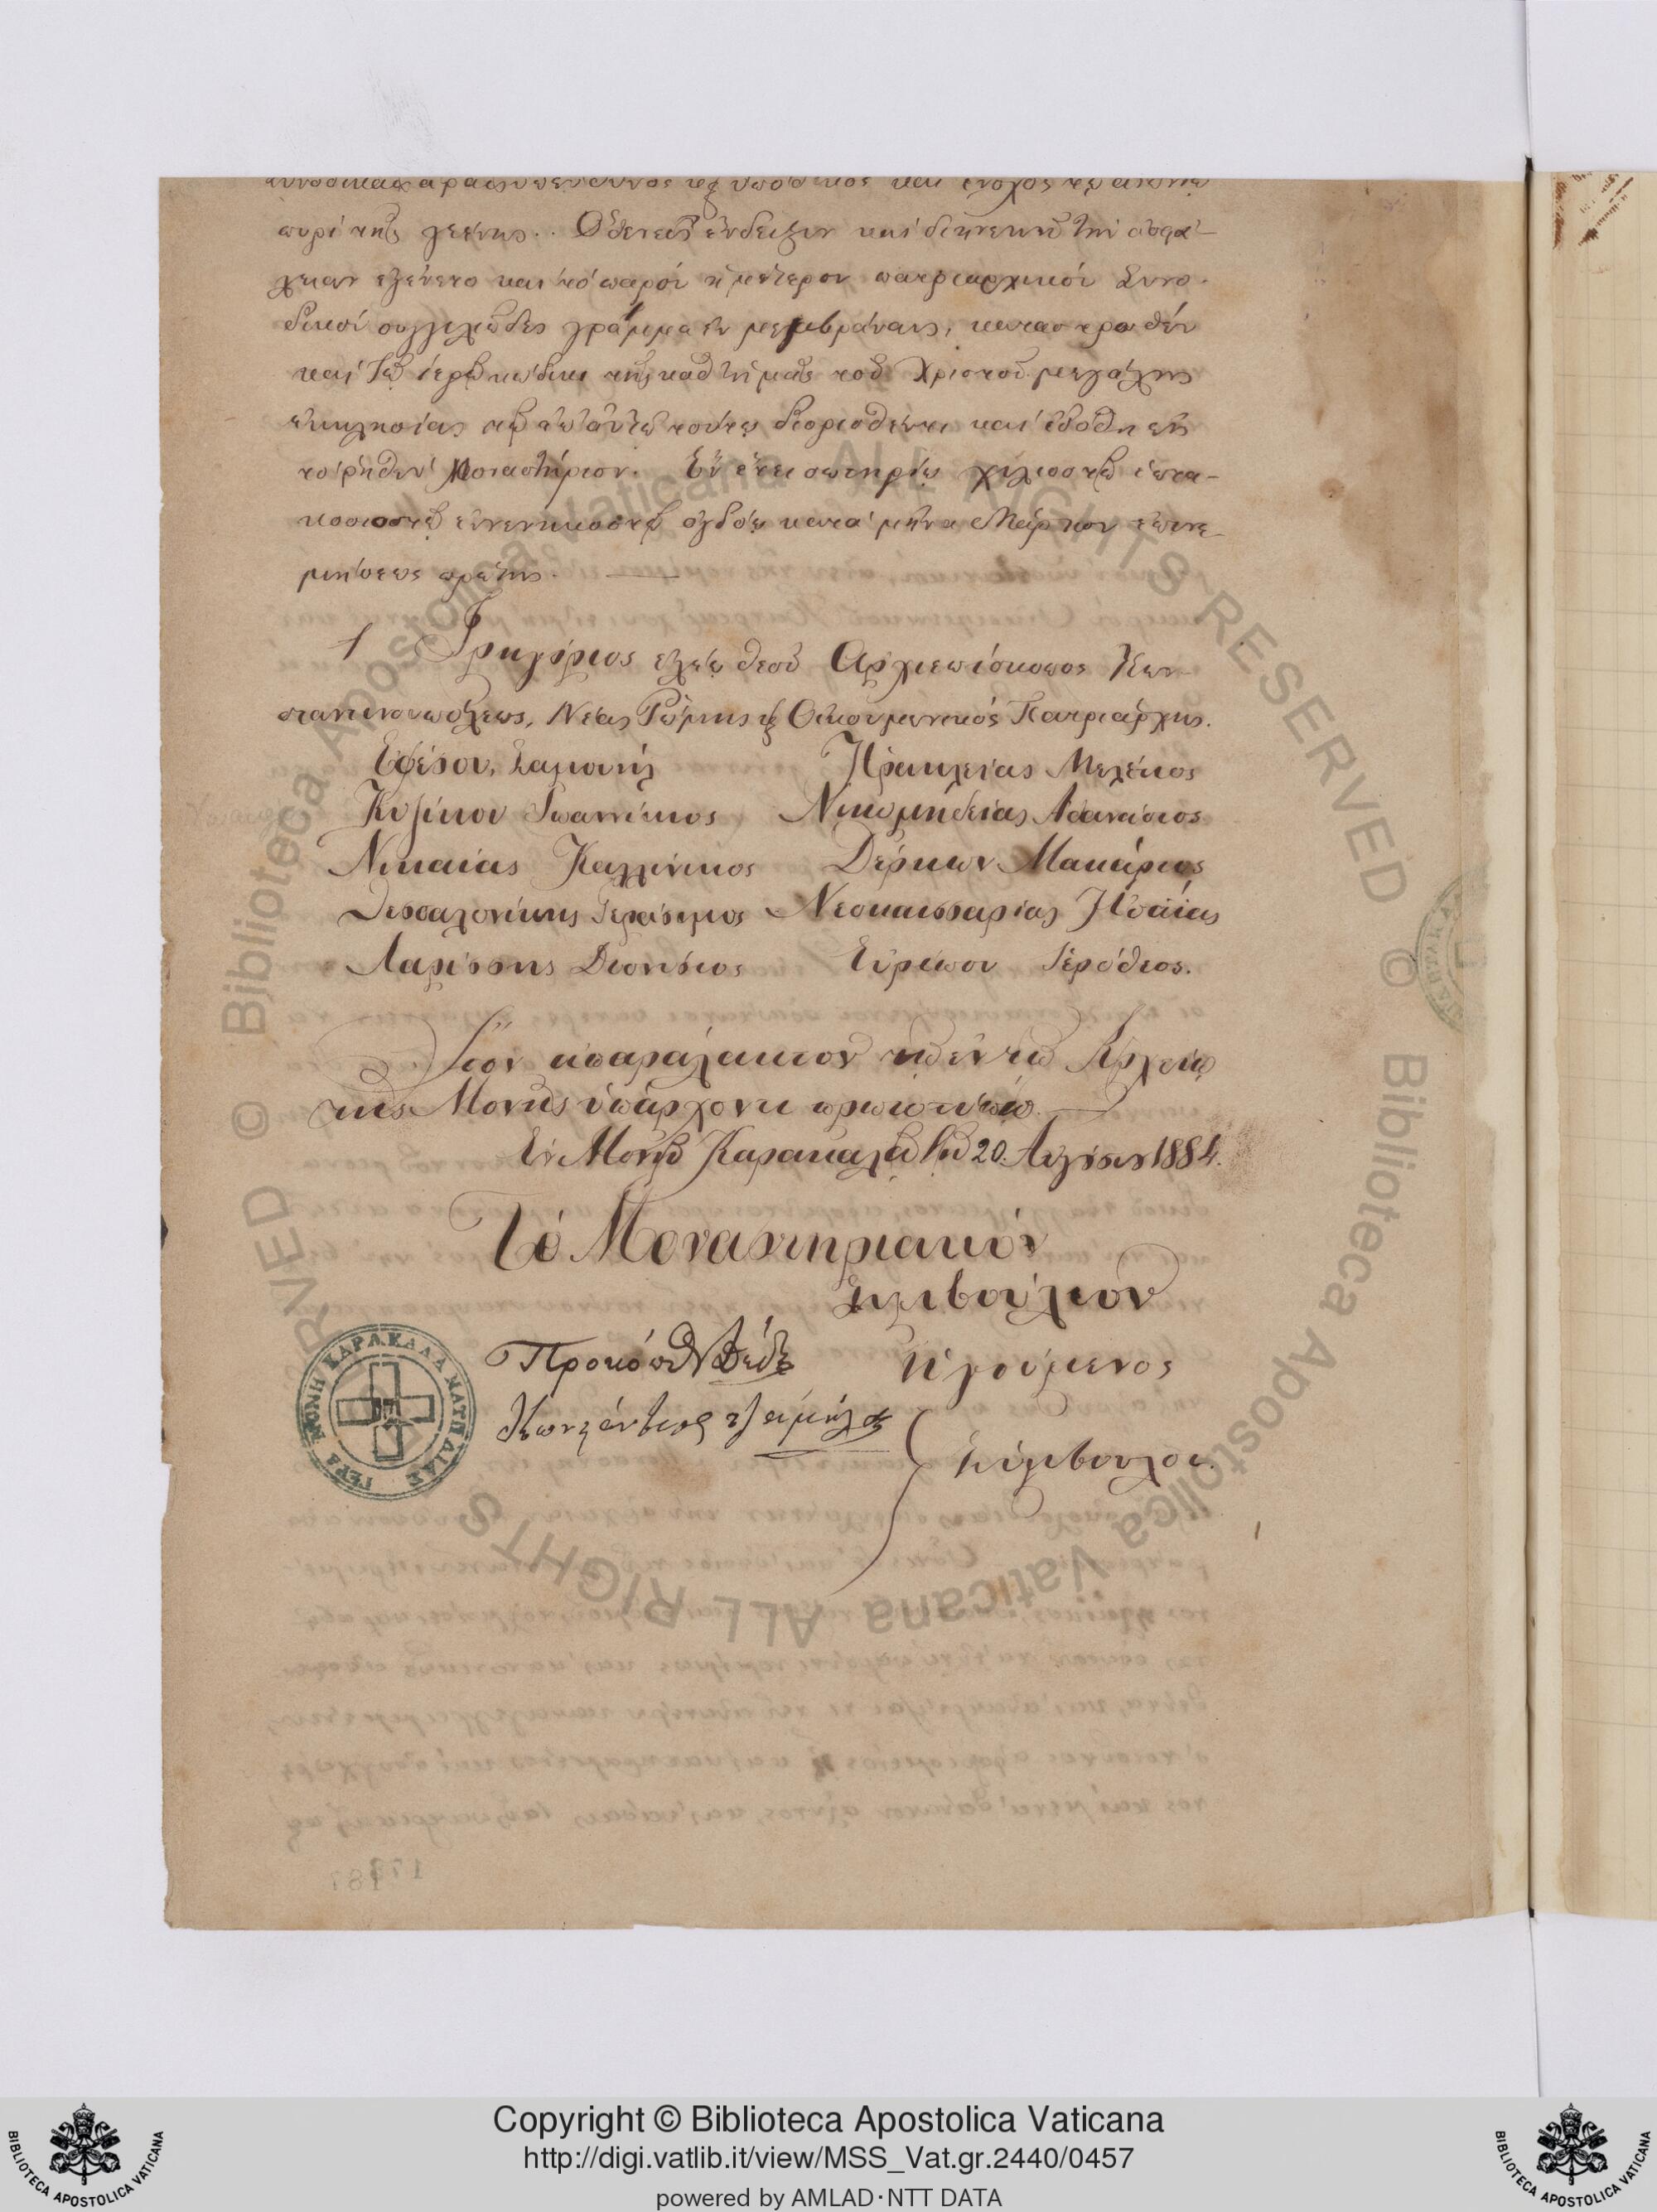 πυρὶ τῆς γεέννης. Ὅθεν εἰς ἔνδειξιν καὶ διηνεκῆ τὴν ἀσφά-
λειαν ἐγένετο καὶ τὸ παρὸν ἡμέτερον πατριαρχικὸν Συνο-
δικὸν συγγιλιῶδες γράμμα ἐν μεμβράναις, καταστρωθὲν
καὶ τῷ ἱερῷ κώδικι τῆς καθ' ἡμᾶς τοῦ Χριστοῦ μεγάλης
ἐκκλησίας καὶ ἐδόθη εἰς
τὸ ῥηθὲν Μοναστήριον. Ἐν ἔτει σωτηρίῳ χιλιοστῷ ἑπτα-
κοσιοστῷ ἐννενηκοστῷ ὀγδόῳ κατὰ μῆνα Μάρτιον ἐπινε-
μήσεως πρώτης. —
† Γρηγόριος ἐλέῳ θεοῦ Ἀρχιεπίσκοπος Κων-
σταντινουπόλεως, Νέας Ῥώμης καὶ Οἰκουμενικὸς Πατριάρχης.
Ἐφέσου, Σαμουήλ Ἡρακλείας Μελέτιος
Κυζίκου Ἰωαννίκιος Νικομηδείας Ἀθανάσιος
Νικαίας Καλλίνικος Δέρκων Μακάριος
Θεσσαλονίκης Γεράσιμος Νεοκαισσαρίας Ἡσαΐας
Λαρίσσης Διονήσιος Εὐρίπου Ἱερόθεος.
Ἴσον ἀπαράλακτον τῷ ἐν τῷ Ἀρχείῳ
τῆς Μονῆς ὑπάρχοντι πρωτοτύπῳ.
Ἐν Μονῇ Καρακάλλου τῇ 20. Αὐγούστου 1884.
Τὸ Μοναστηριακὸν
Συμβούλιον
Προκόπιος Ἡγούμενος
Κωνστάντιος
Σύμβουλοι.
ΙΕΡΑ ΜΟΝΗ ΚΑΡΑΚΑΛΛ
Copyright © Biblioteca Apostolica Vaticana
http://digi.vatlib.it/view/MSS_Vat.gr.2440/0457
powered by AMLAD·NTT DATA
BIBLIOTECA APOSTOLICA VATICANA
BIBLIOTECA APOSTOLICA VATICANA
© Biblioteca Apostolica Vaticana ALL RIGHTS RESERVED © Biblioteca Apostolica Vaticana ALL RIGHTS RESERVED